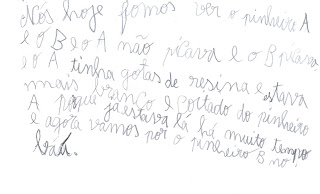 Nós hoje fomos ver o pinheiro A
e o B e o A não picava e o B picava
e o A tinha gotas de resina e estava
mais branco e cortado do pinheiro
A porque já estava lá há muito tempo
e agora vamos por o pinheiro B no